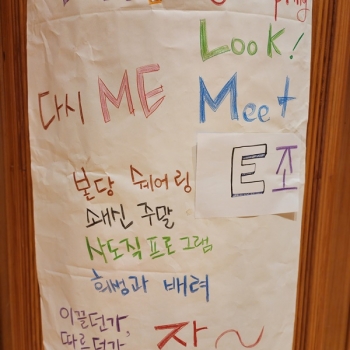 Look!
다시 ME Meet
E조
본당 쉐어링
쇄신 주말
사도직 프로그램
희생과 배려
이끌던가,
따르던가 자~